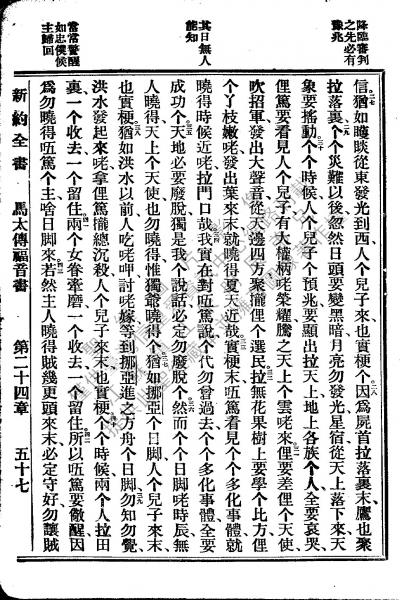 降臨審判
之先必有
豫兆
其日無人
能知
當常警醒
如忠僕候
主歸回
信猶如矐睒從東發光到西人个兒子來也實梗个因爲屍首拉落裏末鷹也聚
拉落裏个个災難以後忽然日頭要變黑暗月亮勿發光星宿從天上落下來天
象要搖動个个時候人个兒子个預兆要顯出拉天上地上各族个人全要哀哭
俚篤要看見人个兒子有大權柄咾榮耀騰之天上个雲咾來俚要差俚个天使
吹招軍發出大聲音從天邊四方聚攏俚个選民拉無花果樹上要學个比方俚
个丫枝嫩咾發出葉來末就曉得夏天近哉實梗末㕶篤看見个个多化事體就
曉得時候近咾拉門口哉我實在對㕶篤說个代勿曾過去个个多化事體全要
成功个天地必要廢脫獨是我个說話必定勿廢脫个然而个个日脚咾時辰無
人曉得天上个天使也勿曉得惟獨爺曉得个猶如挪亞个日脚人个兒子來末
也實梗猶如洪水以前人吃咾呷討咾嫁等到挪亞進之方舟个日脚勿知勿覺
洪水發起來咾拿俚篤攏總沉殺人个兒子來末也實梗个个時候兩个人拉田
裏一个收去一个留住兩个女眷牽磨一个收去一个留住所以㕶篤要儆醒因
爲勿曉得㕶篤个主啥日脚來若然主人曉得賊幾更頭來末必定守好勿讓賊
新約全書 馬太傳福音書 第二十四章 五十七